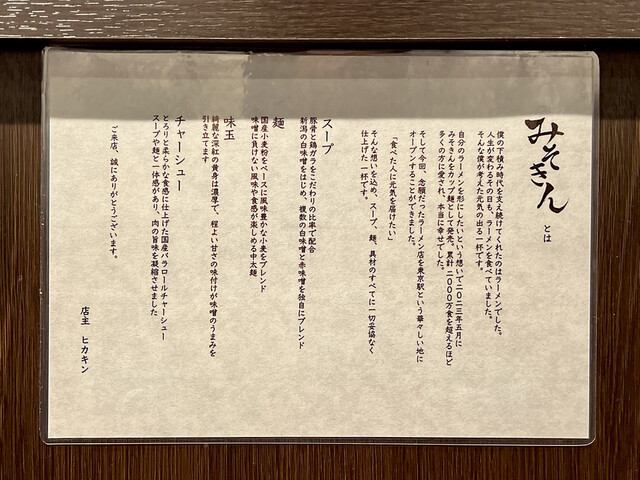 みそきん とは
僕の下積み時代を支え続けてくれたのはラーメンでした。
人生が変わるその日も、ラーメンを食べていました。
そんな僕が考えた元気の出る一杯です。
自分のラーメンを形にしたいという想いで二〇二三年五月に
みそきんをカップ麺として発売。累計 二〇〇〇万食を超えるほど
多くの方に愛され、本当に幸せでした。
そして今回、念願だったラーメン店を東京駅という華々しい地に
オープンすることができました。
「食べた人に元気を届けたい」
そんな想いを込め、スープ、麺、具材のすべてに一切妥協なく
仕上げた一杯です。
スープ
豚骨と鶏ガラをこだわりの比率で配合
新潟の白味噌をはじめ、複数の白味噌と赤味噌を独自にブレンド
麺
国産小麦粉をベースに風味豊かな小麦をブレンド
味噌に負けない風味や食感が楽しめる中太麺
味玉
綺麗な深紅の黄身は濃厚で、程よい甘さの味付けが味噌のうまみを
引き立てます
チャーシュー
とろりと柔らかな食感に仕上げた国産バラロールチャーシュー
スープや麺と一体感があり、肉の旨味を凝縮させました
ご来店、誠にありがとうございます。
店主 ヒカキン